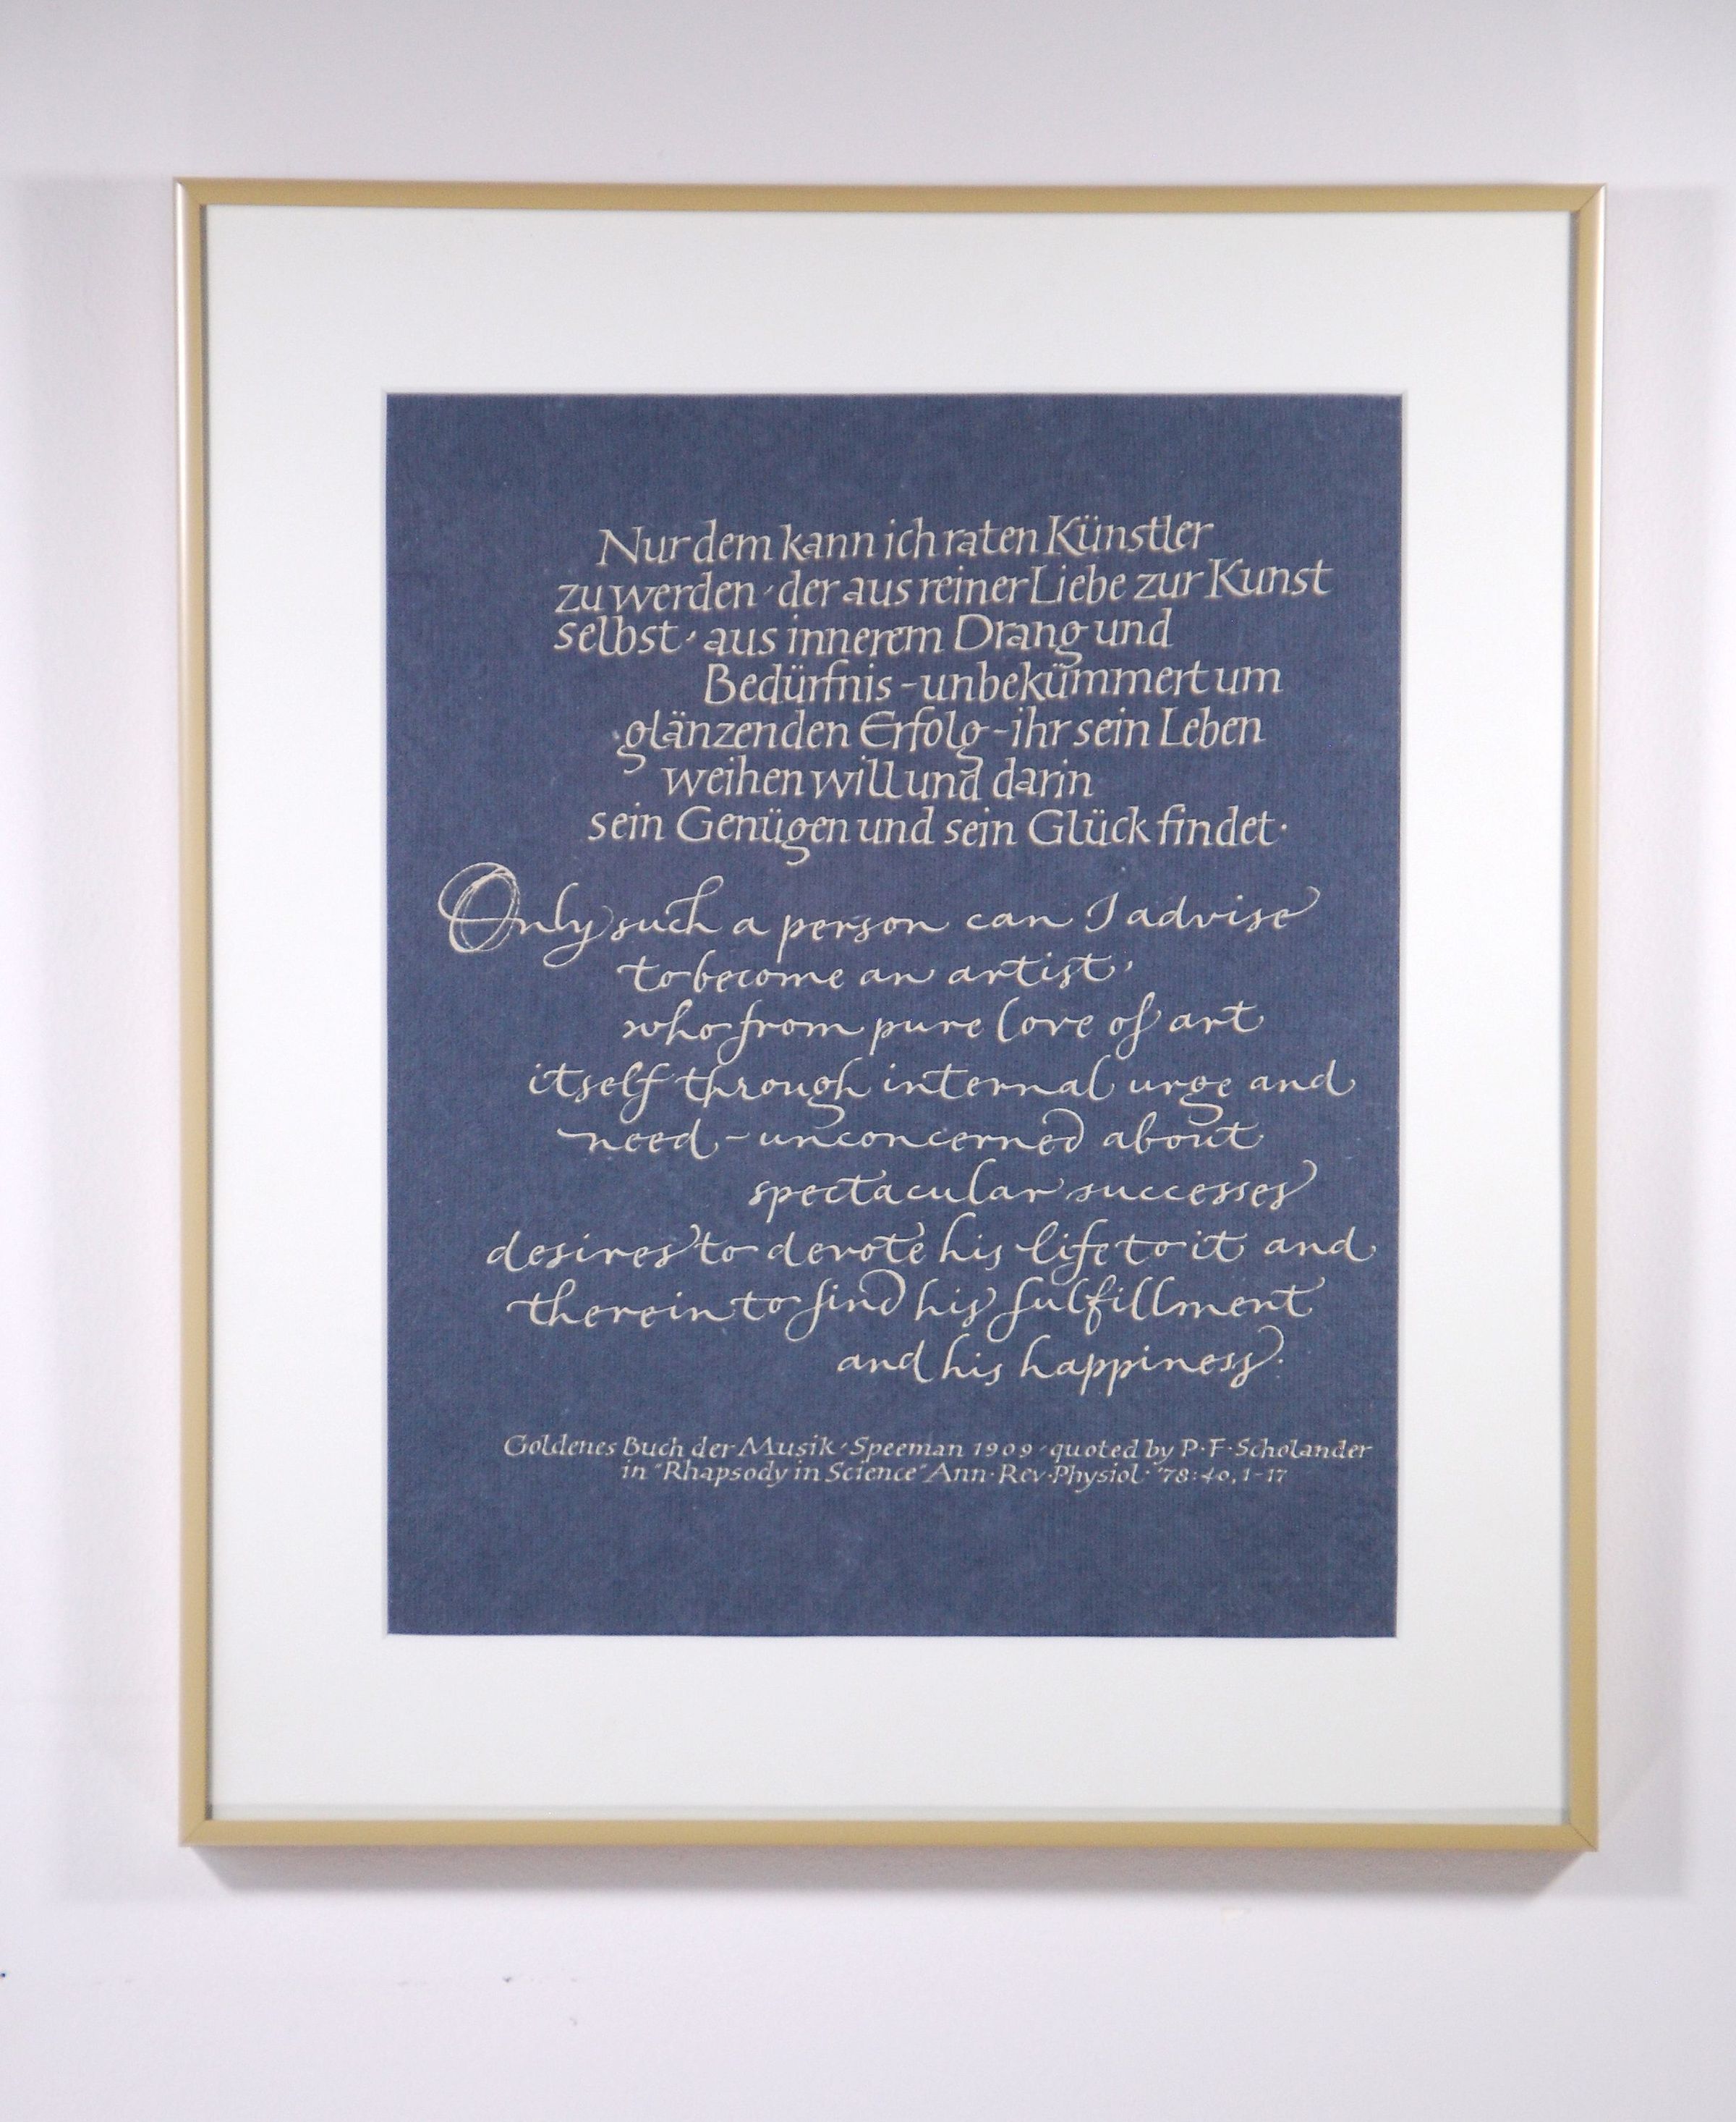 Nur dem kann ich raten Künstler
zu werden, der aus reiner Liebe zur Kunst
selbst, aus innerem Drang und
Bedürfnis - unbekümmert um
glänzenden Erfolg - ihr sein Leben
weihen will und darin
sein Genügen und sein Glück findet.
Only such a person can I advise
to become an artist,
who from pure love of art
itself through internal urge and
need - unconcerned about
spectacular successes
desires to devote his life to it and
therein to find his fulfillment
and his happiness.
Goldenes Buch der Musik, Speeman 1909, quoted by P·F·Scholander
in "Rhapsody in Science" Ann·Rev·Physiol· '78:40, 1-17